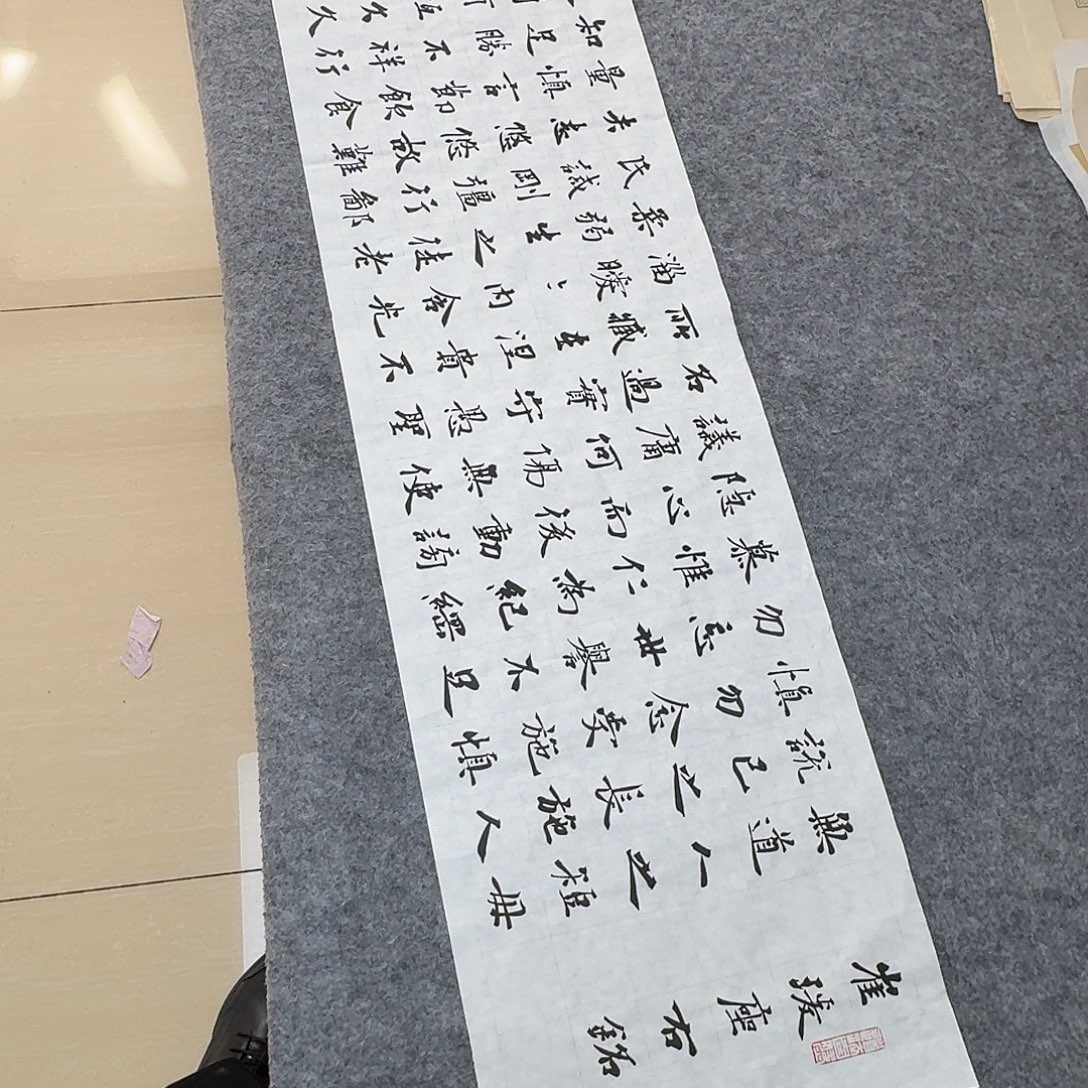 崔瑗座右銘
無道人之短無
說己之長施人
慎勿念受施慎
勿忘世譽不足
慕惟仁為紀綱
隱心而後動謗
議庸何傷無使
名過實守愚聖
所臧在涅貴不
淄曖〻內含光
柔弱生之徒老
氏誡剛彊行鄙
夫志悠悠故難
量慎言節飲食
知足勝不祥行
久久